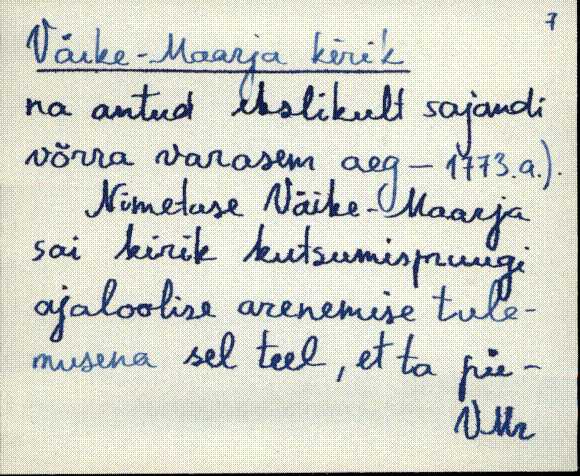 7
Väike-Maarja kirik
na antud ekslikult sajandi
võrra varasem aeg – 1773.a.).
Nimetuse Väike-Maarja
sai kirik kutsumispruugi
ajaloolise arenemise tule-
musena sel teel, et ta pü-
VMr